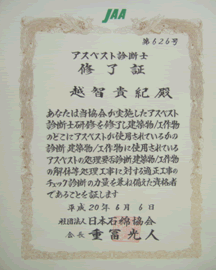 JAA
第626号
アスベスト診断士
修了証
越智貴紀殿
あなたは当協会が実施したアスベスト
診断士研修を修了し建築物/工作物
のどこにアスベストが使用されているかの
診断 建築物/工作物に使用されている
アスベストの処理要否診断 建築物/工作物
の解体等処理工事に対する適正工事の
チェック診断の力量を兼ね備えた資格者
であることを証します
平成20年6月6日
社団法人 日本石綿協会
会長 重冨光人